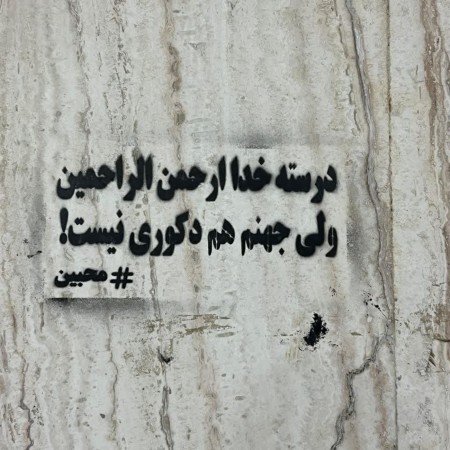 درسته خدا ارحمن الراحمین
ولی جهنم هم دکوری نیست!
#محبین